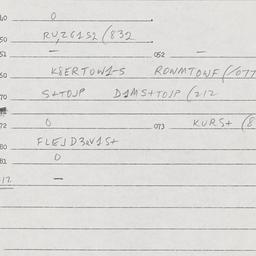 40 0
50 RU,26152 (832
51 — 052 —
60 K8ERTOW1-5 ROWMTOWF (/077
70 S+TOJP D1MS+TOJP (212
72 0 073 KURS+ (8
80 FLEJD3WV1S+
81 0
12 —